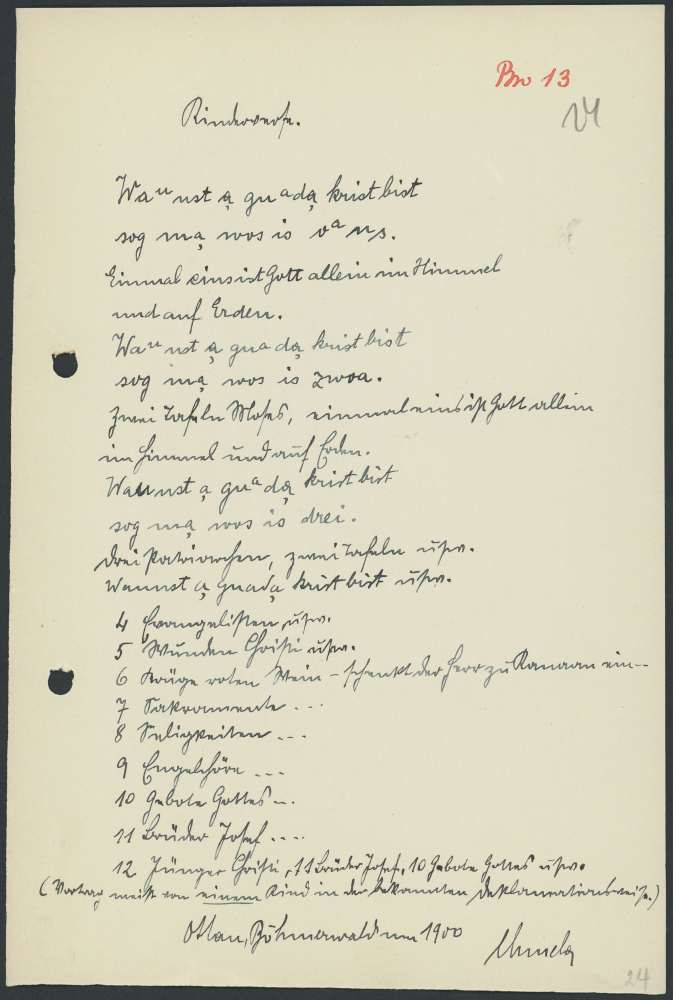 Bm 13
24
Kinderverse.
Waⁿ nst ą guᵃdą krist bist
sog mą wos is oᵃns.
Einmal eins ist Gott allein im Himmel
und auf Erden.
Waⁿ nst ą guadą krist bist
sog mą wos is zwoa.
Zwei Tafeln Moses, einmal eins ist Gott allein
im Himmel und auf Erden.
Wannst ą guᵃdą krist bist
sog mą wos is drei.
Drei Patriarchen, zwei Tafeln usw.
Wannst ą guadą krist bist usw.
4 Evangelisten, usw.
5 Wunden Christi usw.
6 Krüge roten Wein – schenkt der Herr zu Kanaan ein--
7 Sakramente ...
8 Seligkeiten ...
9 Engelchöre ---
10 Gebote Gottes --.
11 Brüder Josef ....
12 Jünger Christi, 11 Brüder Josef, 10 Gebote Gottes usw.
(Vortrag meist von einem Kind in der bekannten Deklamationsweise.)
Ottau, Böhmerwald um 1900
24